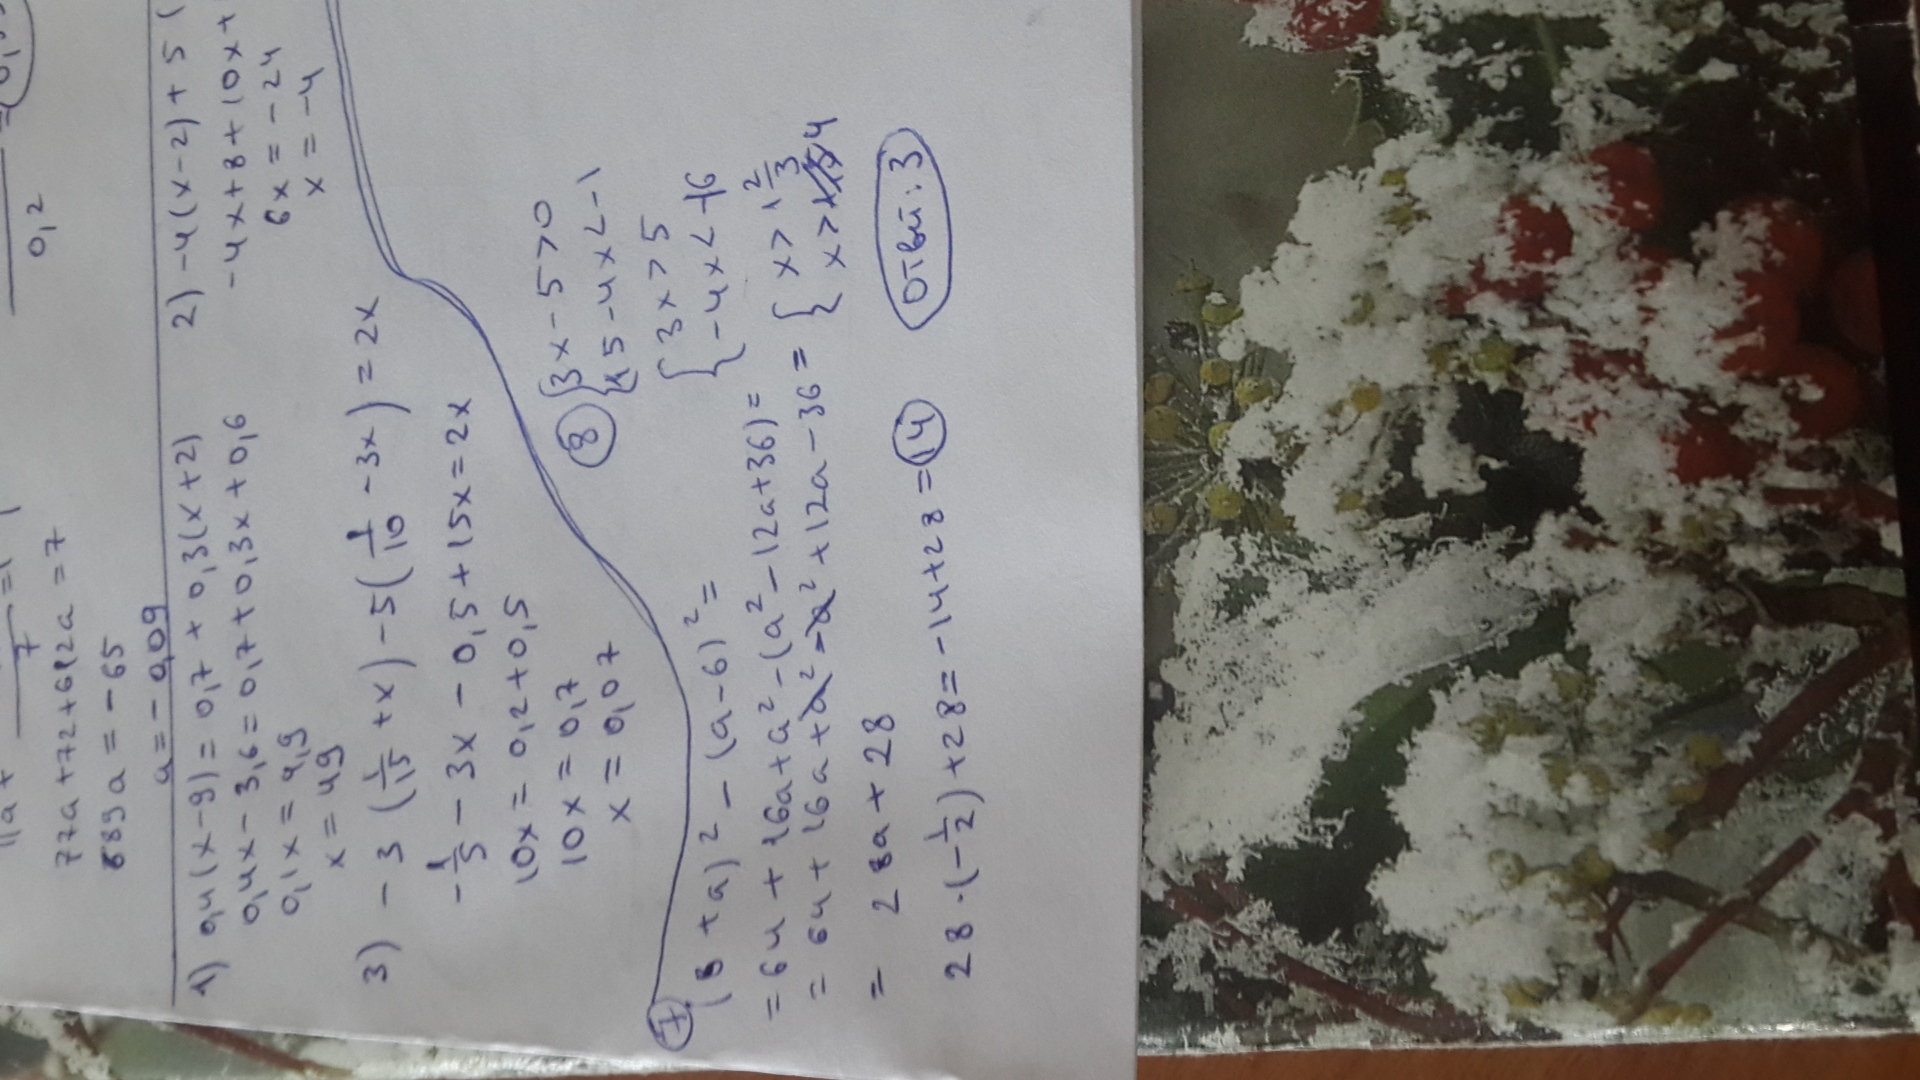 0,2
7
77a+72+612a=7
689a=-65
a=-0,09
1) 0,4(x-9)=0,7+0,3(x+2)
0,4x-3,6=0,7+0,3x+0,6
0,1x=4,9
x=49
2) -4(x-2)+5(
-4x+8+10x+
6x=-24
x=-4
3) -3(1/15+x)-5(1/10-3x)=2x
-1/5-3x-0,5+15x=2x
10x=0,2+0,5
10x=0,7
x=0,07
7
(8+a)²-(a-6)²=
=64+16a+a²-(a²-12a+36)=
=64+16a+a²-a²+12a-36=
=28a+28
28·(-1/2)+28=-14+28=14
8 {3x-5>0
{15-4x<-1
{3x>5
{-4x<-16
{x>1 2/3
{x>4
Ответ: 3